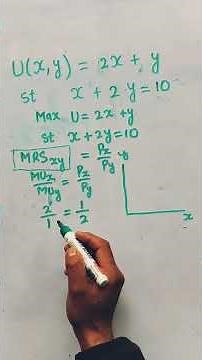 U(x,y) = 2x + y
st x + 2y = 10
Max U = 2x + y
st x + 2y = 10
MRSxy = Px/Py
MUx/MUy = Px/Py
2/1 = 1/2
y
x